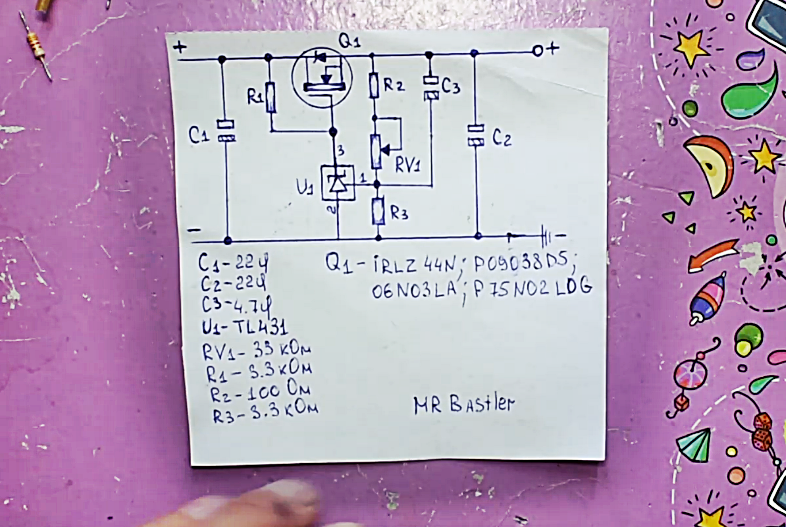 + Q1 +
R1 R2 C3
C1 3 RV1 C2
U1 1
2 R3
− −
C1-22ч
C2-22ч
C3-4.7ч
U1-TL431
RV1-33 кОм
R1-3.3кОм
R2-100 Ом
R3-3.3 кОм
Q1-iRLZ44N; P0903BDS;
06N03LA; P75N02LDG
MR Bastler